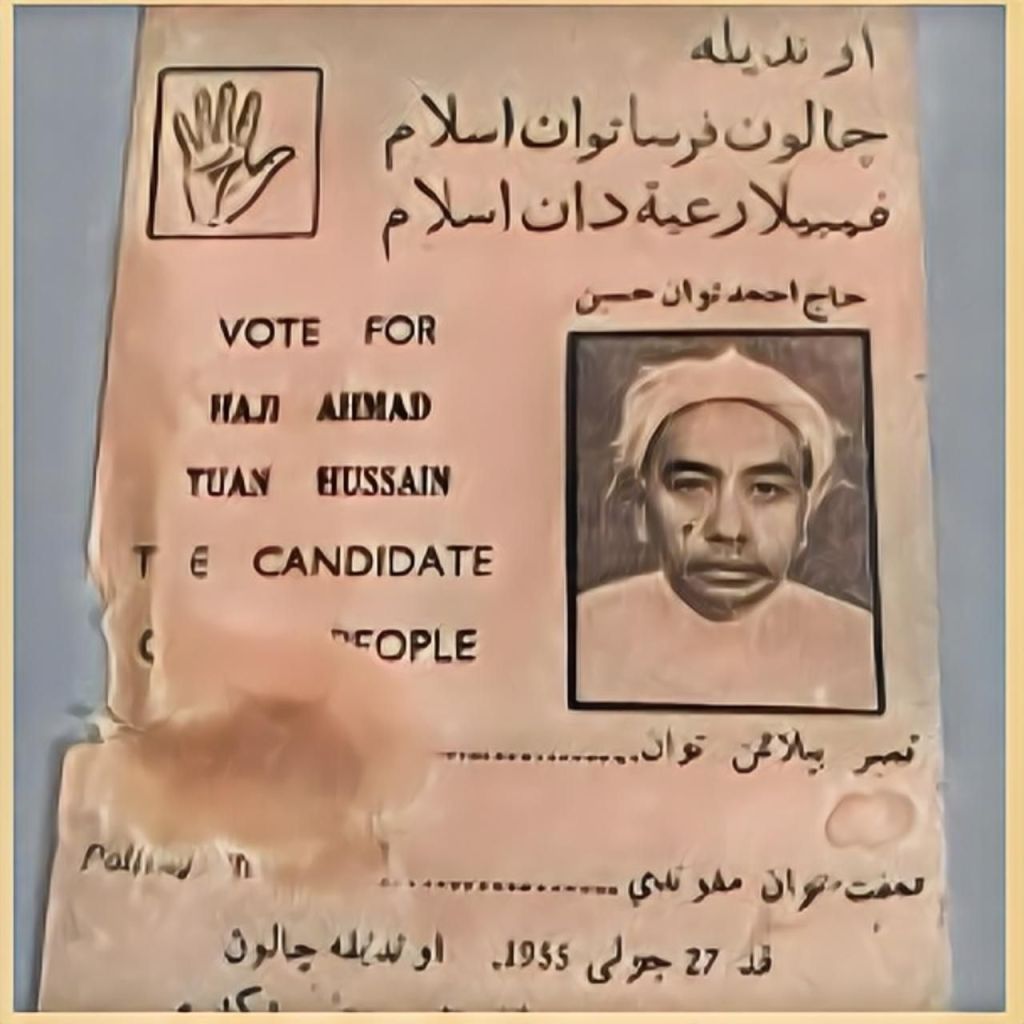 اوندیله
چالون فرساتوان اسلام
فمبيلا رعية دان اسلام
حاج احمد توان حسين
VOTE FOR
HAJI AHMAD
TUAN HUSSAIN
T E CANDIDATE
PEOPLE
نمبر بيلاڠن توان
تمفت توان مڠوندي
فد 27 جولي 1955. اونديله چالون